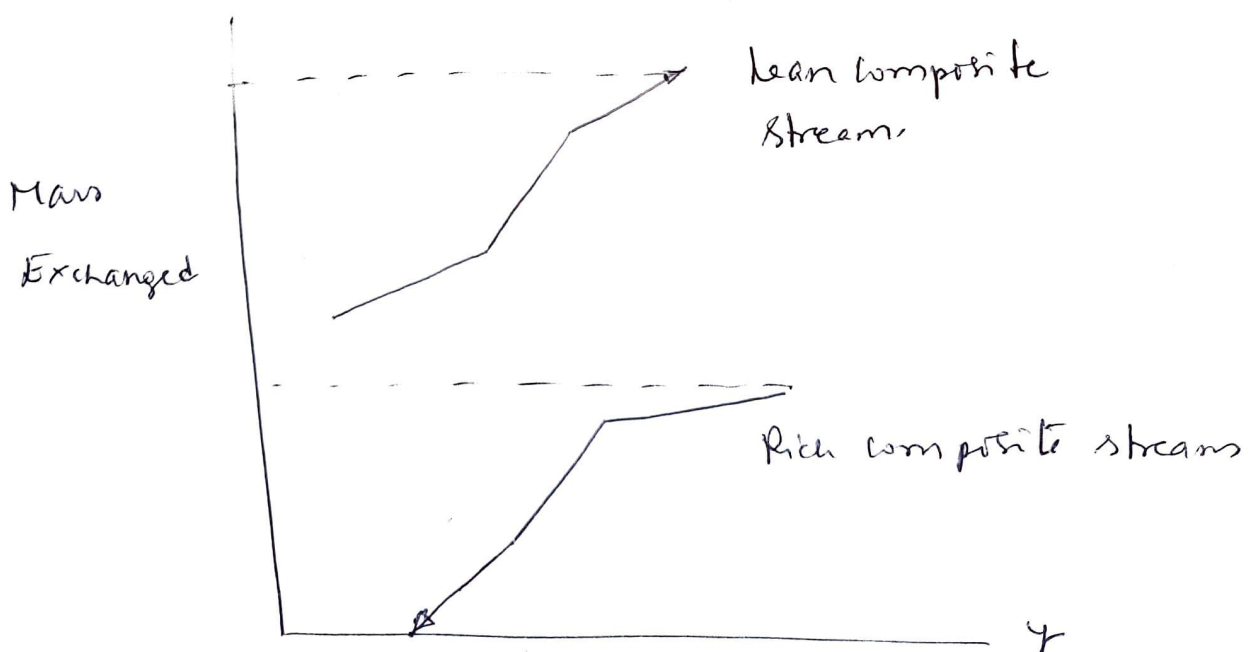 Lean composite
stream.
Mass
Exchanged
Rich composite streams
y